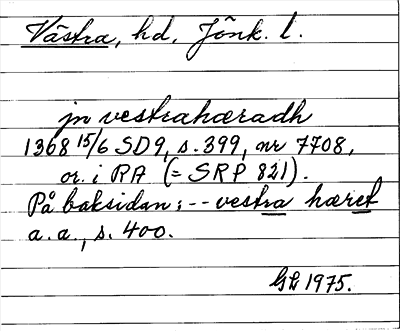 Västra, hd, Jönk. l.
jn vestrahæradh
1368 15/6 SD9, s. 399, nr 7708,
or. i RA (= SRP 821).
På baksidan: -- vestra hæret
a. a., s. 400.
GL 1975.